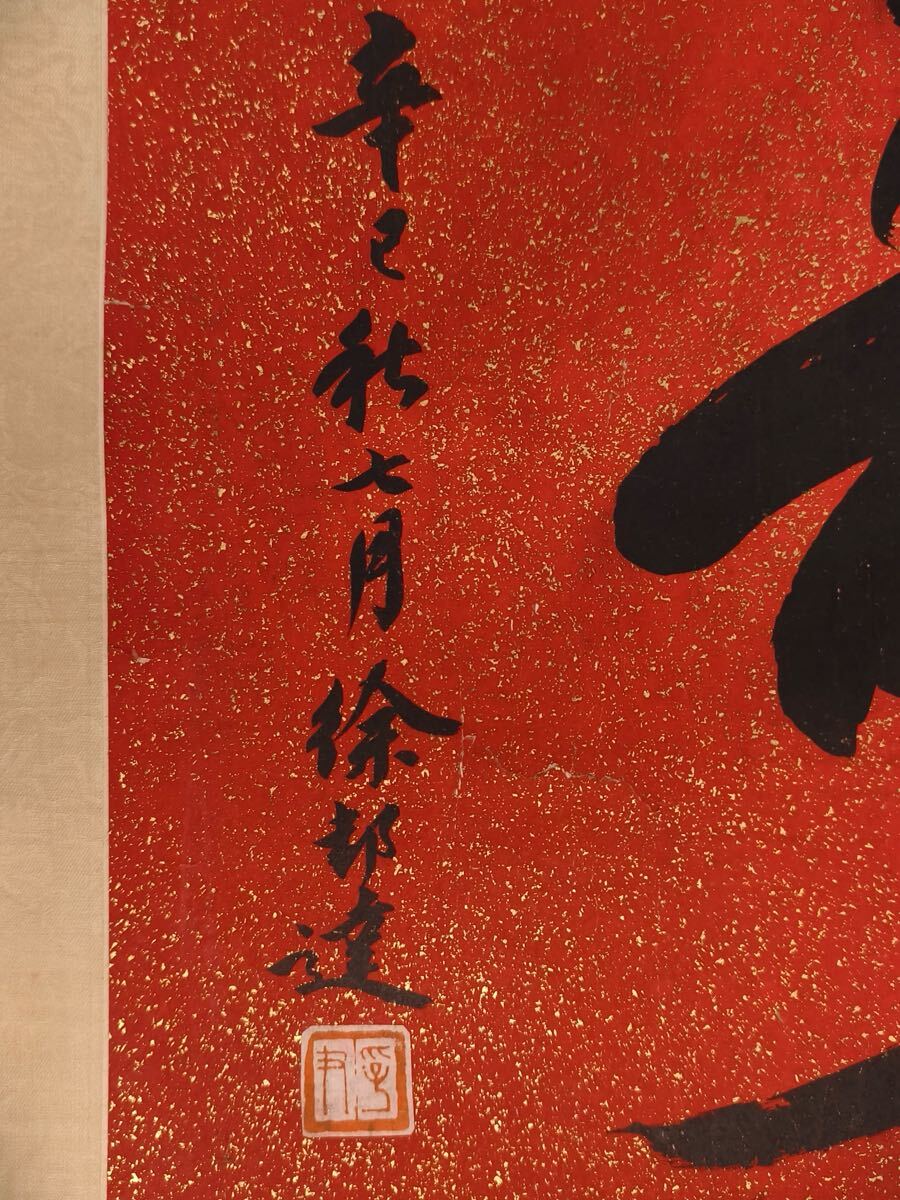 辛巳秋七月徐邦達
孚尹